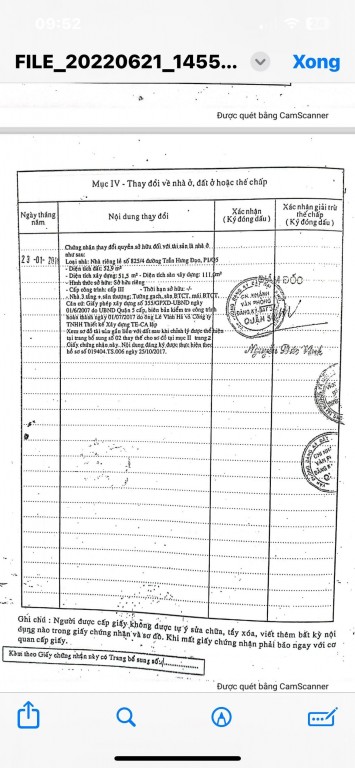 09:52
FILE_20220621_1455...
Xong
Được quét bằng CamScanner
Mục IV - Thay đổi về nhà ở, đất ở hoặc thế chấp
Ngày tháng năm
Nội dung thay đổi
Xác nhận
(Ký đóng dấu)
Xác nhận giải trừ thế chấp
(Ký đóng dấu)
23-01-
Chứng nhận thay đổi quyền sở hữu đối với tài sản là nhà ở
như sau:
Loại nhà: Nhà riêng lẻ số 825/4 đường Trần Hưng Đạo,
- Diện tích đất: 52,9 m²
- Diện tích xây dựng: 51,5 m² - Diện tích sàn xây dựng: 111, m²
- Hình thức sở hữu: Sở hữu riêng
- Cấp công trình: cấp III - Thời hạn sở hữu: -/-
- Nhà 3 tầng + sân thượng; Tường gạch, sàn BTCT, mái BTCT.
Căn cứ: Giấy phép xây dựng số 355/GPXD-UBND ngày
01/6/2017 do UBND Quận 5 cấp, biên bản kiểm tra công trình
hoàn thành ngày 01/07/2017 do ông Lê Vinh và Công ty
TNHH Thiết kế Xây dựng TE-CA lập
- Xem sơ đồ tài sản gắn liền với đất sau khi chỉnh lý được thể hiện
tại trang bổ sung số 02 thay thế cho sơ đồ tại mục II trang 2
Giấy chứng nhận này. Nội dung đăng ký được thực hiện theo
hồ sơ số 019404.TS.006 ngày 25/10/2017.
GIÁM ĐỐC
CHI NHÁNH
VĂN PHÒNG
ĐĂNG KÝ ĐẤT
QUẬN 5
Ghi chú : Người được cấp giấy không được tự ý sửa chữa, tẩy xóa, viết thêm bất kỳ nội
dung nào trong giấy chứng nhận và sơ đồ. Khi mất giấy chứng nhận phải báo ngay với cơ
quan cấp giấy.
Kèm theo Giấy chứng nhận này có Trang bổ sung số:
Được quét bằng CamScanner